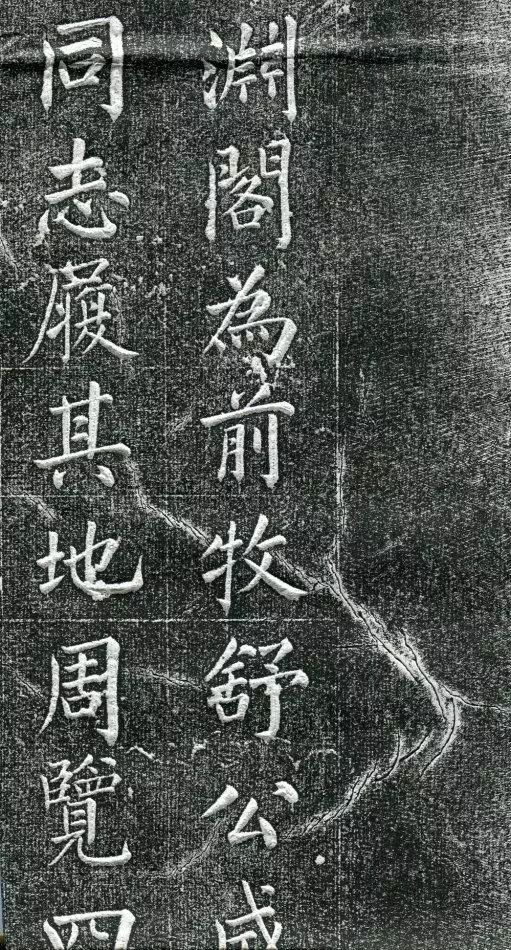 淵閣為前牧舒公
同志履其地周覽四